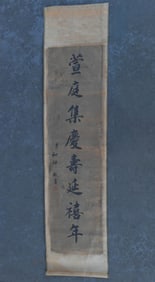 萱庭集慶壽延禧年